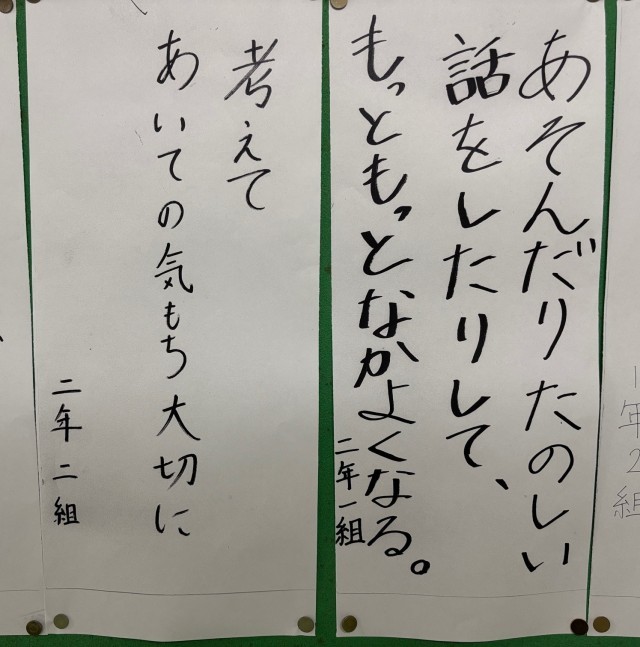 1年2組
あそんだりたのしい
話をしたりして、
もっともっとなかよくなる。
二年一組
考えて
あいての気もち大切に
二年二組